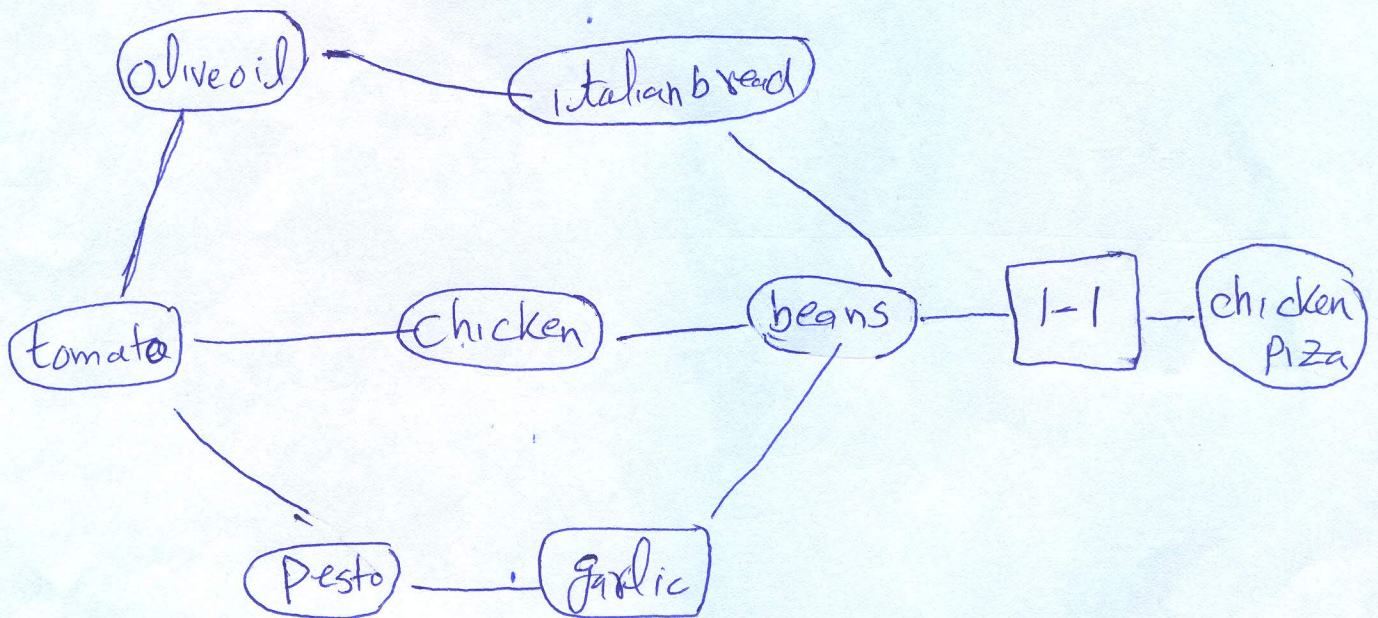 oliveoil
italianbread
tomato
chicken
beans
1-1
chicken
Piza
Pesto
garlic